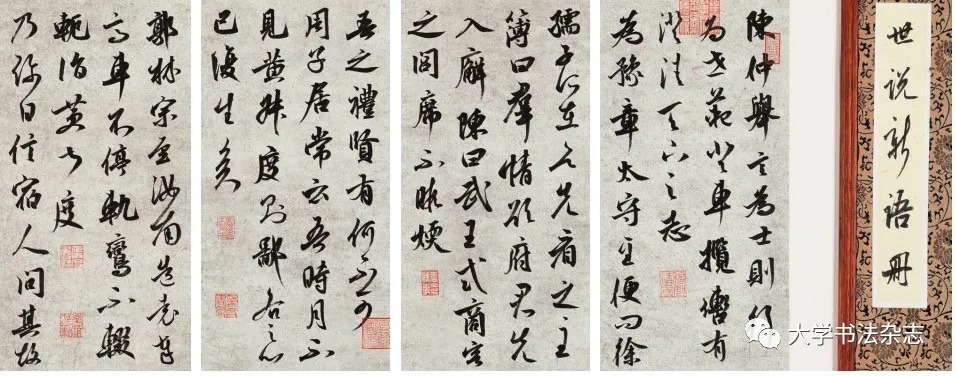 世说新语册
陳仲舉言為士則行
為世範登車攬轡有
澄清天下之志
為豫章太守至便問徐
孺子所在欲先看之主
簿曰羣情欲府君先
入廨陳曰武王式商容
之閭席不暇煖
吾之禮賢有何不可
周子居常云吾時月不
見黃叔度則鄙吝之心
已復生矣
郭林宗至汝南造袁奉
高車不停軌鸞不輟
軛詣黃叔度
乃彌日信宿人問其故
大学书法杂志